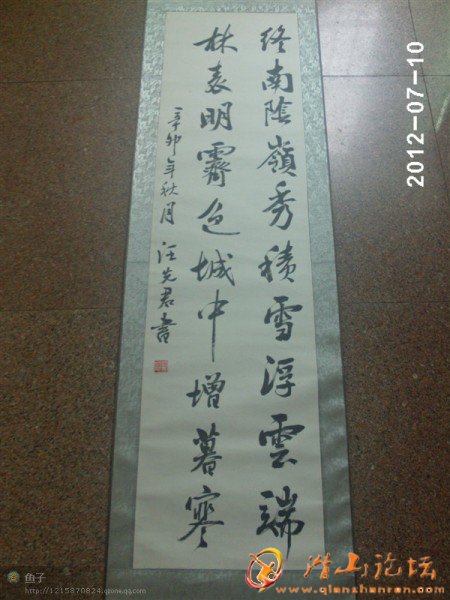 终南陰嶺秀積雪浮雲端
林表明霽色城中增暮寒
辛卯年秋月 汪先君書
2012-07-10
鱼子
http://1215870824.qzone.qq.com
潜山论坛
www.qianshanren.com